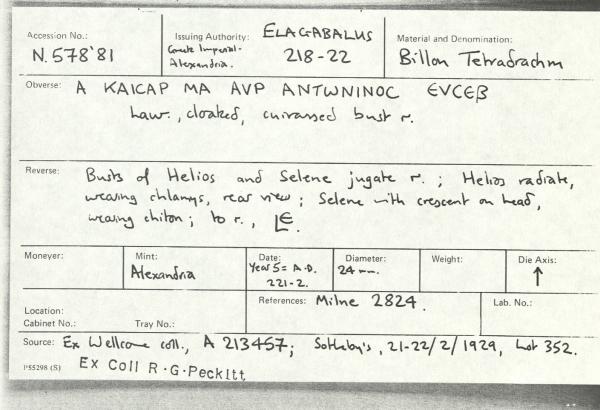 Accession No.:
N.578'81
Issuing Authority: ELAGABALUS
Greek Imperial-
Alexandria. 218-22
Material and Denomination:
Billon Tetradrachm
Obverse: A KAICAP MA AVP ANTWNINOC EVCEB
Laur., cloaked, cuirassed bust r.
Reverse: Busts of Helios and Selene jugate r. ; Helios radiate,
wearing chlamys, rear view ; Selene with crescent on head,
wearing chiton ; to r. , LE.
Moneyer:
Mint:
Alexandria
Date:
Year 5 = A.D.
221-2.
Diameter:
24 mm.
Weight:
Die Axis:
↑
Location:
Cabinet No.: Tray No.:
References: Milne 2824.
Lab. No.:
Source: Ex Wellcome coll., A 213457; Sotheby's, 21-22/2/1929, Lot 352.
P55298 (S) Ex Coll R.G.Peckitt